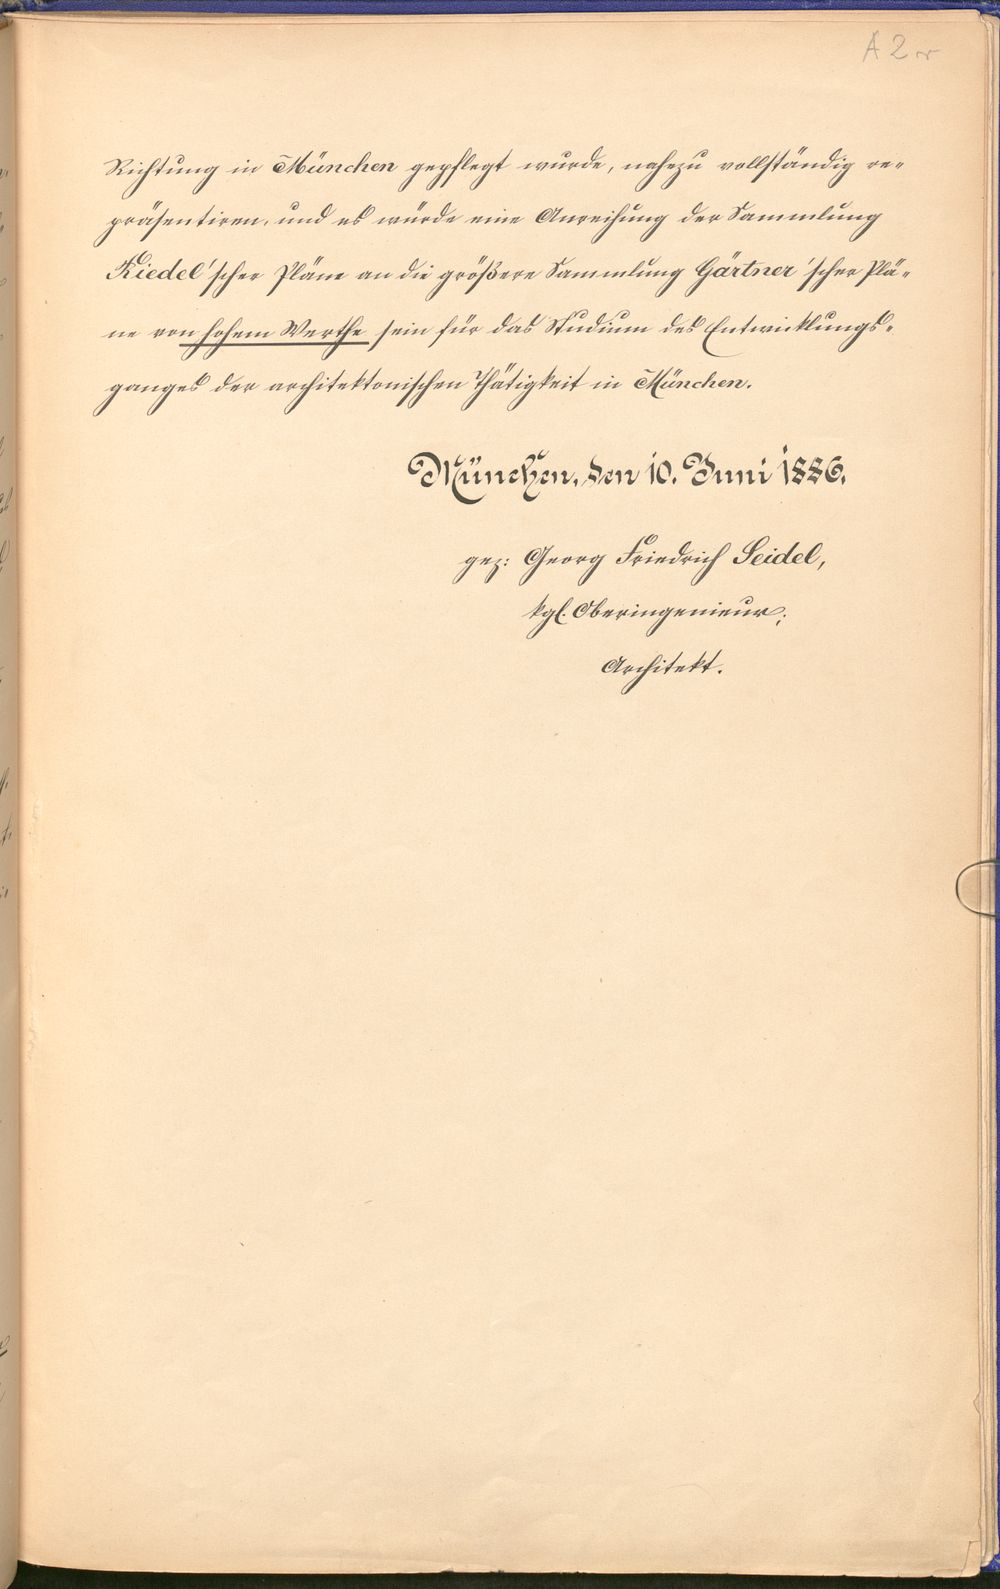 A 2 r
Richtung in München gepflegt wurde, nahezu vollständig re-
präsentiren, und es würde eine Anreihung der Sammlung
Riedel'scher Pläne an die größere Sammlung Gärtner'scher Plä-
ne von hohem Werthe sein für das Studium des Entwicklungs-
ganges der architektonischen Thätigkeit in München.
München, den 10. Juni 1886.
gez: Georg Friedrich Seidel,
kgl. Oberingenieur,
Architekt.